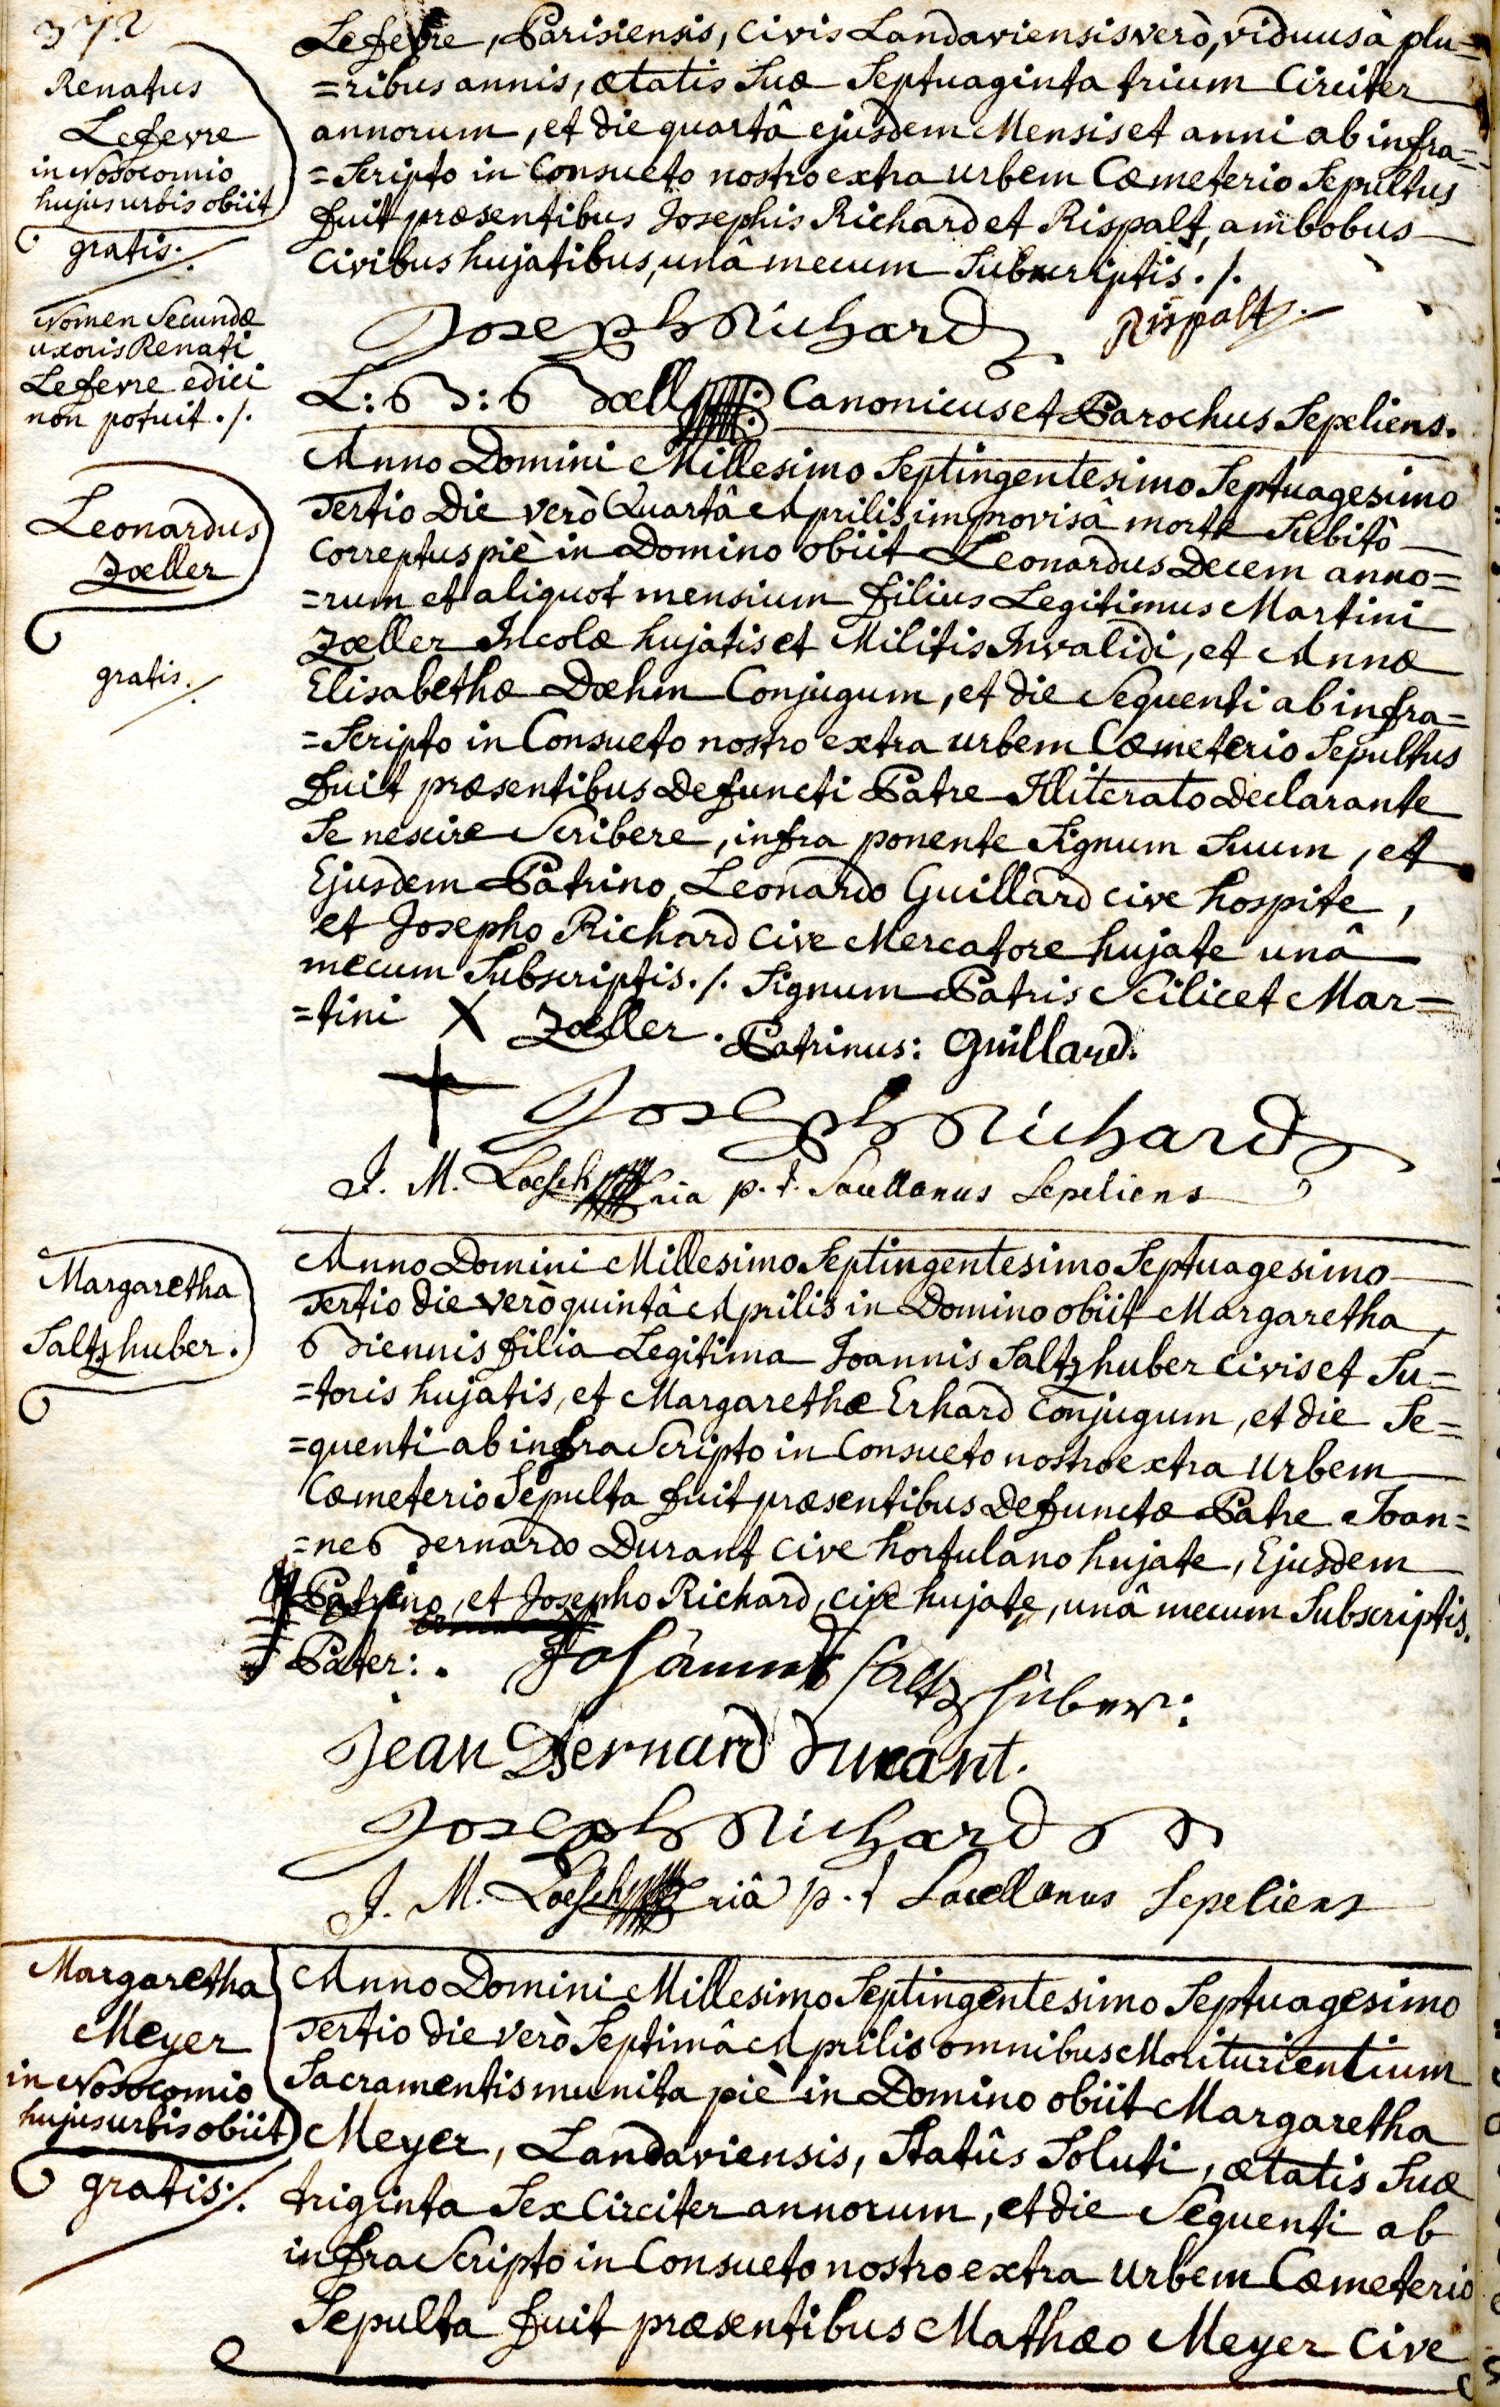 372
Renatus
Lefevre
in Nosocomio
hujus urbis obiit
gratis ./.
Nomen Secundæ
uxoris Renati
Lefevre edici
non potuit ./.
Lefevre, Parisiensis, Civis Landaviensis verò, viduus à plu=
=ribus annis, ætatis Suæ Septuaginta trium Circiter
annorum, et die quartâ ejusdem Mensis et anni ab infra=
=Scripto in Consueto nostro extra urbem Cæmeterio Sepultus
fuit præsentibus Josephis Richard et Rispalt, ambobus
Civibus hujatibus, unâ mecum Subscriptis ./.
Joseph Richard Rispalt
Canonicus et Parochus Sepeliens.
Leonardus
Zœller
gratis ./.
Anno Domini Millesimo Septingentesimo Septuagesimo
Tertio Die verò Quartâ Aprilis improvisâ morte Subitò
Correptus piè in Domino obiit Leonardus Decem anno=
=rum et aliquot mensium filius Legitimus Martini
Zœller Incolæ hujatis et Militis Invalidi, et Annæ
Elisabethæ Dœhm Conjugum, et die Sequenti ab infra=
=Scripto in Consueto nostro extra urbem Cæmeterio Sepultus
fuit præsentibus Defuncti Patre Illiterato Declarante
Se nescire Scribere, infra ponente Signum Suum, et
Ejusdem Patrino, Leonardo Guillard cive hospite,
et Josepho Richard Cive Mercatore hujate unâ
mecum Subscriptis ./. Signum Patris Scilicet Mar=
=tini X Zœller. Patrinus: Guillard.
Joseph Richard
J. M. Loesch p. t. Sacellanus Sepeliens
Margaretha
Saltzhuber.
Anno Domini Millesimo Septingentesimo Septuagesimo
Tertio die verò quintâ Aprilis in Domino obiit Margaretha
Biennis filia Legitima Joannis Saltzhuber Civis et Su=
=toris hujatis, et Margarethæ Erhard Conjugum, et die Se=
=quenti ab infra Scripto in Consueto nostro extra urbem
Cæmeterio Sepulta fuit præsentibus Defunctæ Patre Joan=
=ne Bernardo Durant cive hortulano hujate, Ejusdem
Patrino, et Josepho Richard, cive hujate, unâ mecum Subscriptis.
Pater: Johannes Saltzhuber:
Jean Bernard durant.
Joseph Richard
J. M. Loesch p. t. Sacellanus Sepeliens
Margaretha
Meyer
in Nosocomio
hujus urbis obiit
gratis ./.
Anno Domini Millesimo Septingentesimo Septuagesimo
Tertio die verò Septimâ Aprilis omnibus Moriturientium
Sacramentis munita piè in Domino obiit Margaretha
Meyer, Landaviensis, Statûs Soluti, ætatis Suæ
triginta Sex Circiter annorum, et die Sequenti ab
infra Scripto in Consueto nostro extra urbem Cæmeterio
Sepulta fuit præsentibus Mathæo Meyer Cive